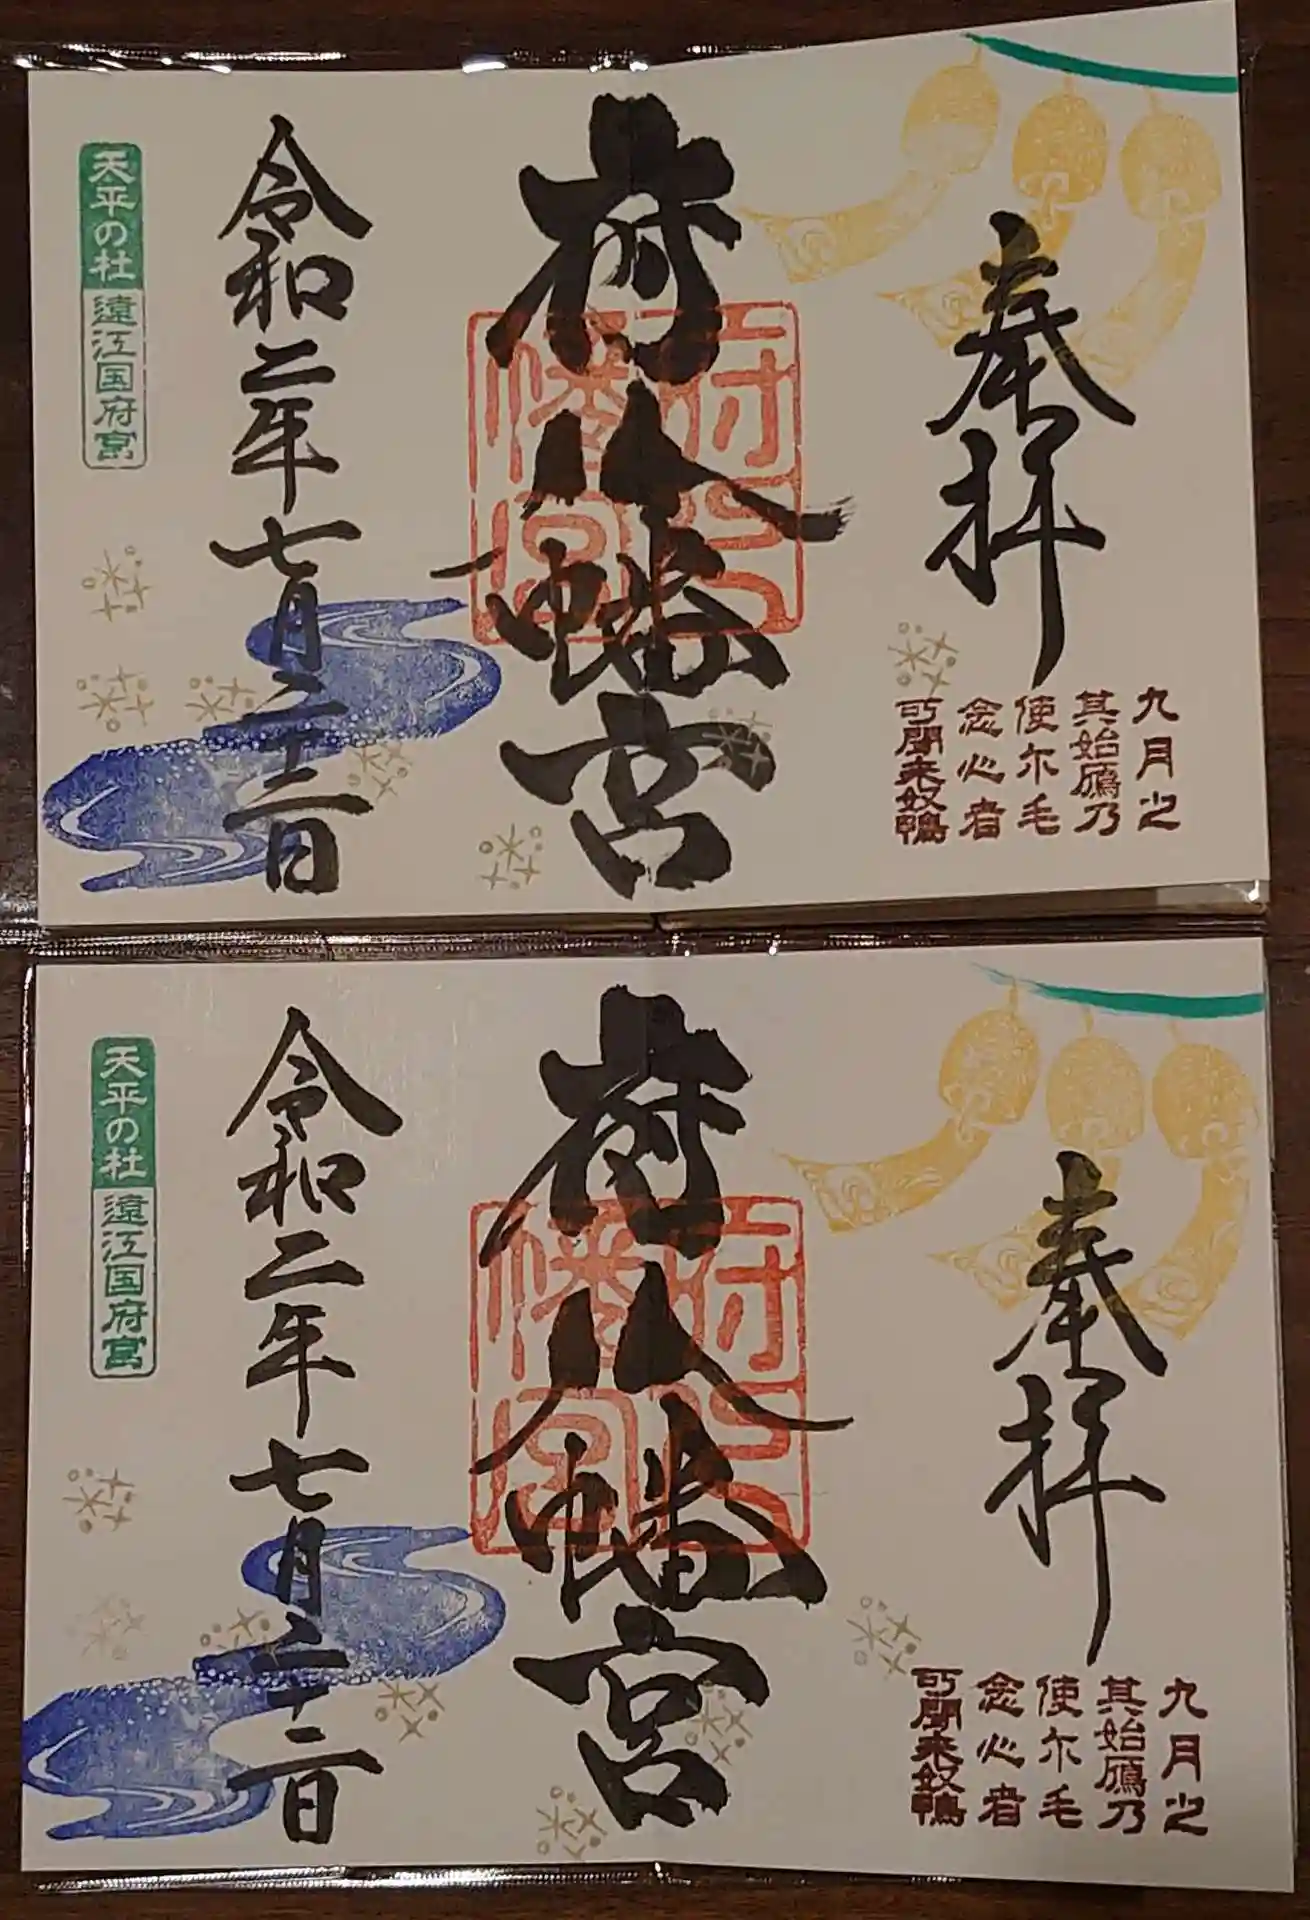 奉拝
九月之
其始鴈乃
使尓毛
念心者
所聞来奴鴨
府八幡宮
府八幡宮
令和二年七月二十二日
天平の杜 遠江国府宮
奉拝
九月之
其始鴈乃
使尓毛
念心者
所聞来奴鴨
府八幡宮
府八幡宮
令和二年七月二十二日
天平の杜 遠江国府宮